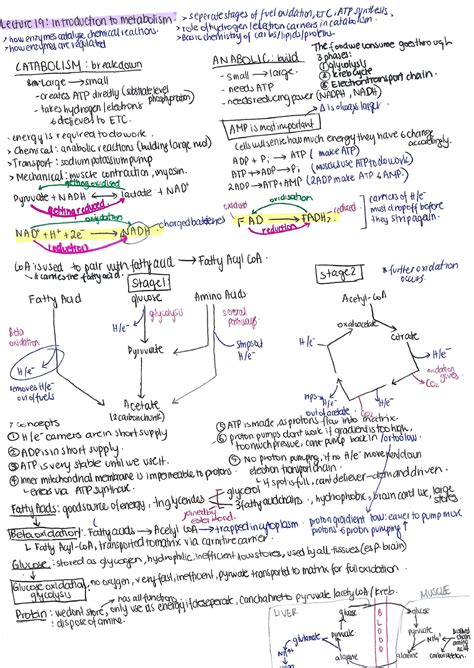 Lecture 19: Introduction to metabolism
> how enzymes catalyse chemical reactions.
> how enzymes are regulated
> seperate stages of fuel oxidation, ETC, ATP synthesis,
> role of hydrogen/electron carriers in catabolism.
> Basic chemistry of carbs/lipids/proteins.
CATABOLISM: breakdown
Large → small
- creates ATP directly (substrate level phosphorylation)
- takes hydrogen/electrons & delivers to ETC.
ANABOLIC: build
- small → large.
- needs ATP
- needs reducing power (NADPH, NADH)
The food we consume goes through
3 phases:
① glycolysis
② kreb cycle
③ Electron transport chain.
Δ is always larger
AMP is most important
cells will sense how much energy they have & change accordingly.
ADP + Pi → ATP (make ATP)
ATP → ADP + Pi (muscles use ATP to do work)
ATP + AMP → 2ADP (2ADP make ATP & AMP.)
- energy is required to do work.
> Chemical: anabolic reactions (building large mol)
> Transport: sodium potassium pump
> Mechanical: muscle contraction, myosin.
getting oxidised
Pyruvate + NADH ⟷ lactate + NAD+
getting reduced
oxidation
NAD+ + H+ + 2e- → NADH
reduction
charged batteries
oxidisation
FAD → FADH2
reduction
carriers of H/e-
must drop off before
they strip again.
CoA is used to pair with fatty acid → Fatty Acyl CoA
↳ carries the fatty acid.
Stage 1
Fatty Acid
glucose
Amino Acids
glycolysis
several pathways
Beta oxidation
H/e-
H/e-
Pyruvate
H/e-
removes H/e- out of fuels
Acetate
(2 carbon chunk)
stage 2
* further oxidation occurs.
Acetyl-CoA
oxaloacetate
citrate
H/e-
H/e-
oxidation gives CO2
H/e-
CO2
H/e-
out of acetate
7 concepts
① H/e- carriers are in short supply
② ADP is in short supply.
③ ATP is very stable until we use it.
④ inner mitochondrial membrane is impermeable to protons
↳ enters via ATP synthase.
⑤ ATP is made, as protons flow into matrix.
⑥ proton pumps dont work if gradient is too high,
too much pressure, cant pump back in / or too low.
⑦ No proton pumping, if no H/e- movement down
electron transport chain.
↳ if spot is full, cant deliver - demand driven.
Fatty Acids: good source of energy, triglycerides
glycerol
3 fatty acid chains, hydrophobic, brain cant use, large stores
joined by ester bond.
Beta oxidation: Fatty acids → Acetyl CoA → trapped in cytoplasm
↳ Fatty Acyl-CoA, transported to matrix via carnitine carrier.
proton gradient low: easier to pump more
protons & proton pumping ↑
Glucose: stored as glycogen, hydrophilic, inefficient to store, used by all tissues (esp brain)
Glucose oxidation glycolysis: no oxygen, very fast, inefficient, pyruvate transported to matrix for full oxidation
has all functions
Protein: we dont store, only use as energy if desperate, can change to pyruvate / acetyl CoA / kreb.
: dispose of amine.
LIVER
BLOOD
MUSCLE
glucose
glucose
pyruvate
pyruvate
glutamate
NH4+
NH4+
alanine
alanine
Branched chain amino acids